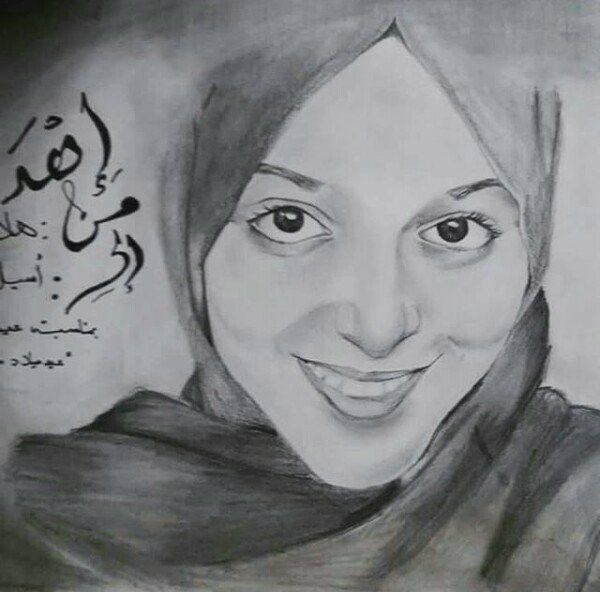 إِهْدَ
مِنَ : هلا
إلى : أسيل
بمناسبة عيد
"عيد ميلاد